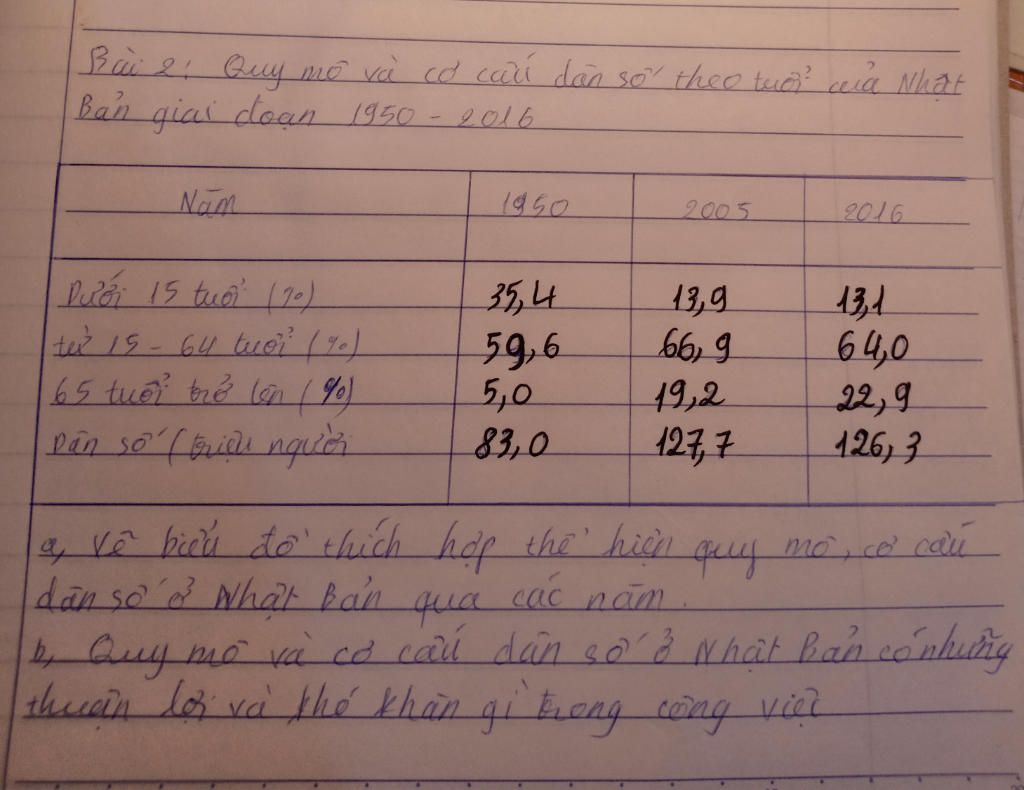 Bài 2: Quy mô và cơ cấu dân số theo tuổi của Nhật
Bản giai đoạn 1950 - 2016
Năm 1950 2005 2016
Dưới 15 tuổi (%) 35,4 13,9 13,1
từ 15 - 64 tuổi (%) 59,6 66,9 64,0
65 tuổi trở lên (%) 5,0 19,2 22,9
Dân số (triệu người 83,0 127,7 126,3
a, Vẽ biểu đồ thích hợp thể hiện quy mô, cơ cấu
dân số ở Nhật Bản qua các năm.
b, Quy mô và cơ cấu dân số ở Nhật Bản có những
thuận lợi và khó khăn gì trong công việc